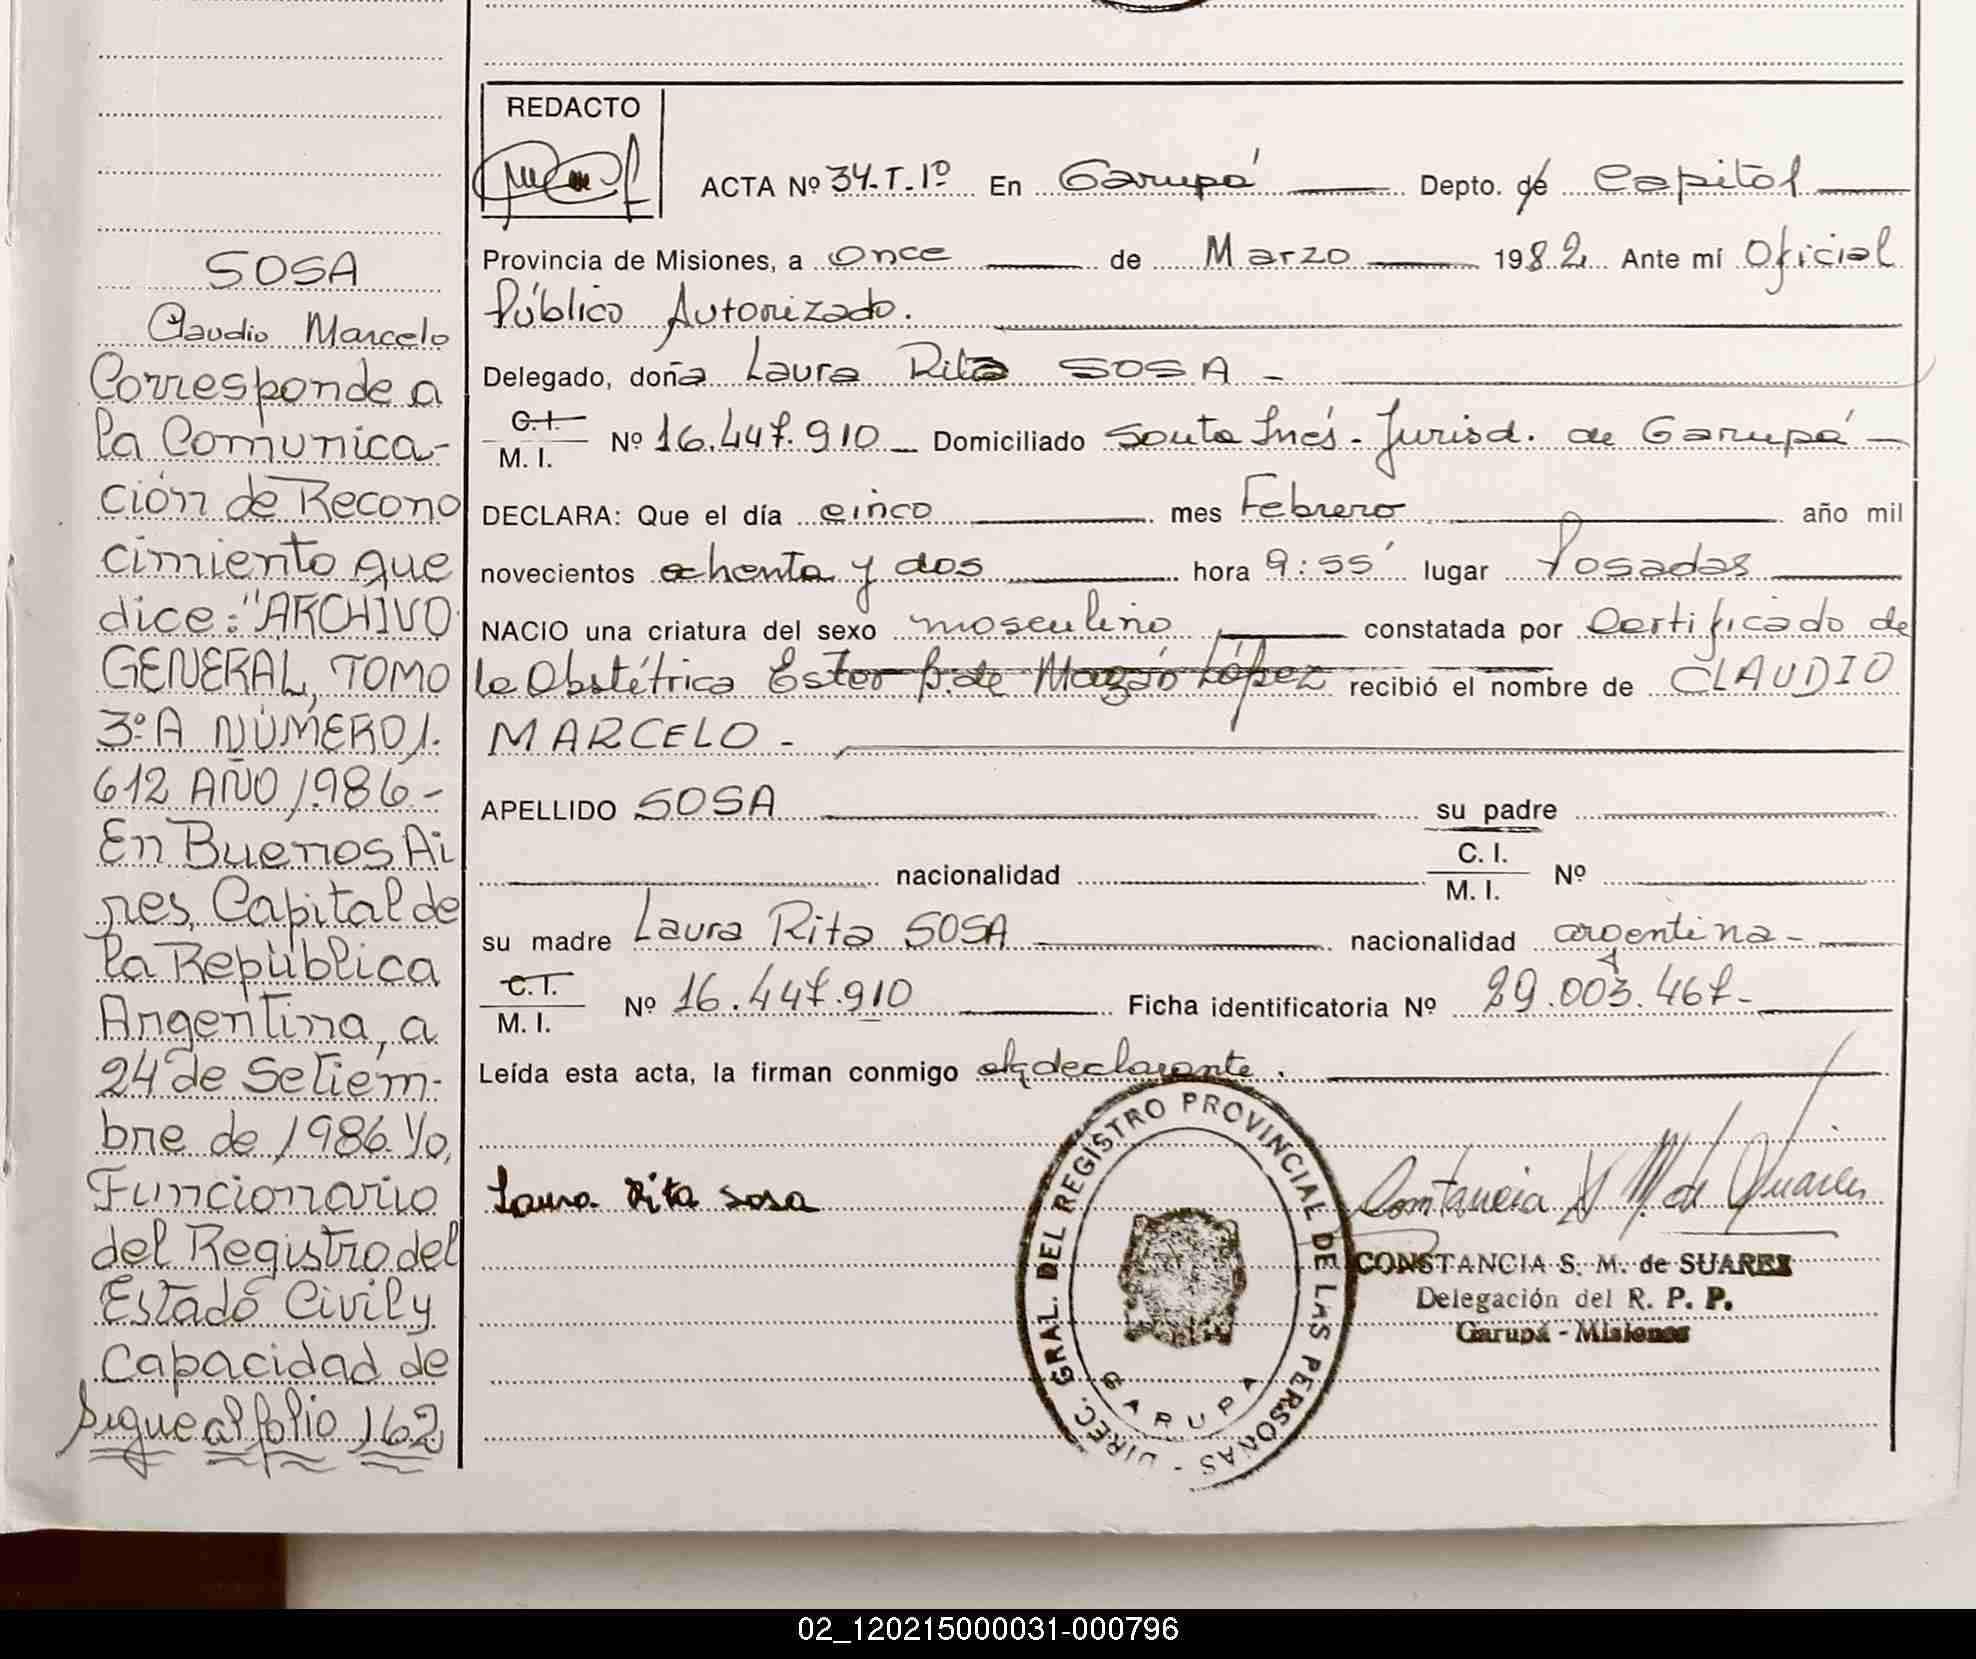 REDACTO
ACTA Nº 34-T-1º En Garupá Depto. de Capital
Provincia de Misiones, a once de Marzo 1982 Ante mí Oficial
Público Autorizado.
Delegado, doña Laura Rita SOSA -
C.I. M. I. Nº 16.447.910 Domiciliado Santa Inés - Jurisd. de Garupá
DECLARA: Que el día cinco mes Febrero año mil
novecientos ochenta y dos hora 9:55' lugar Posadas
NACIO una criatura del sexo masculino constatada por Certificado de
la Obstétrica Ester B. de López recibió el nombre de CLAUDIO
MARCELO -
APELLIDO SOSA su padre
nacionalidad C. I. M. I. Nº
su madre Laura Rita SOSA nacionalidad argentina -
C.I. M. I. Nº 16.447.910 Ficha identificatoria Nº 29.003.467-
Leída esta acta, la firman conmigo declarante.
Laura Rita Sosa
Constancia S. M. de Suarez
CONSTANCIA S. M. de SUAREZ
Delegación del R. P. P.
Garupá - Misiones
DIREC. GRAL. DEL REGISTRO PROVINCIAL DE LAS PERSONAS -
GARUPA
SOSA
Claudio Marcelo
Corresponde a
la Comunica-
ción de Recono
cimiento que
dice: "ARCHIVO
GENERAL, TOMO
3ºA NÚMERO 1.
612 AÑO 1.986-
En Buenos Ai
res, Capital de
la República
Argentina, a
24 de Setiem-
bre de 1986. Yo,
Funcionario
del Registro del
Estado Civil y
Capacidad de
Sigue al folio 162
02_120215000031-000796